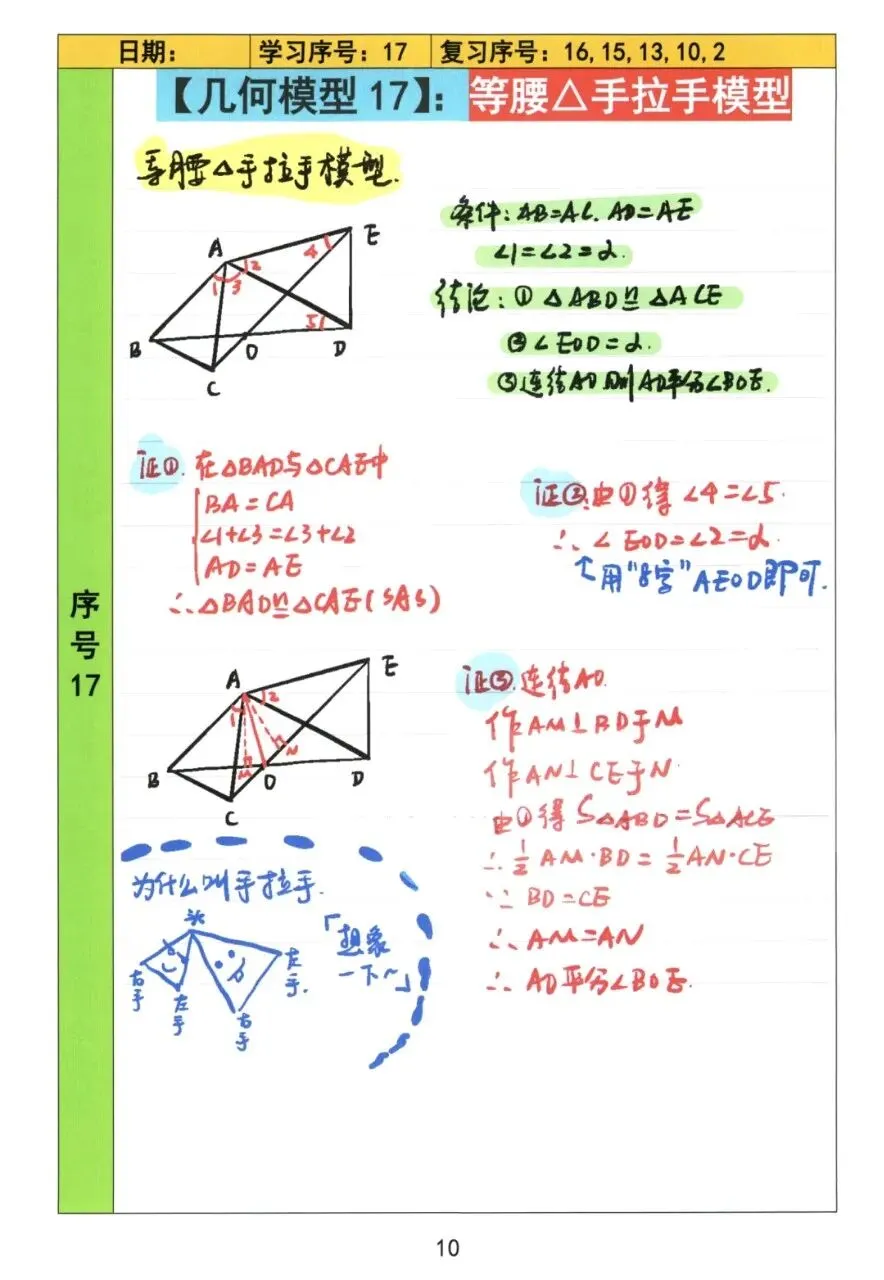 日期： 学习序号：17 复习序号：16,15,13,10,2
【几何模型 17】：等腰△手拉手模型
序号17
等腰△手拉手模型.
A
B
C
D
E
O
1
2
3
4
5
条件：AB=AC. AD=AE
∠1=∠2=α.
结论：① △ABD≌△ACE
② ∠EOD=α.
③连结AO则AO平分∠BOE.
证①. 在△BAD与△CAE中
BA=CA
∠1+∠3=∠3+∠2
AD=AE
∴△BAD≌△CAE(SAS)
证②:由①得 ∠4=∠5.
∴ ∠EOD=∠2=α.
↑用“8字”AEOD即可.
A
B
C
D
E
O
M
N
1
2
证③.连结AO.
作AM⊥BD于M
作AN⊥CE于N.
由①得 S△ABD=S△ACE
∴ 1/2 AM·BD = 1/2 AN·CE
∵ BD=CE
∴ AM=AN
∴ AO平分∠BOE.
为什么叫手拉手.
头
右手
左手
右手
左手.
「想象
一下~」
10